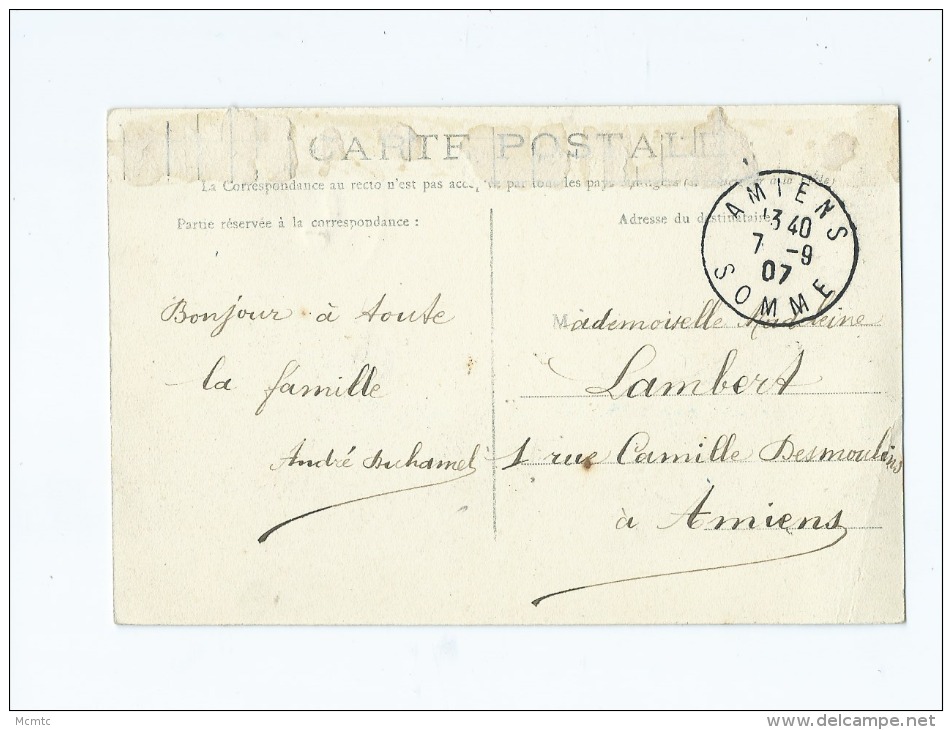 CARTE POSTALE
La Correspondance au recto n'est pas par tous les pays
Partie réservée à la correspondance :
Adresse du destinataire
AMIENS
13 40
7 -9
07
SOMME
Bonjour à toute
la famille
André Duhamel
Mademoiselle Madeleine
Lambert
1 rue Camille Desmoulins
à Amiens
Mcmtc
www.delcampe.net